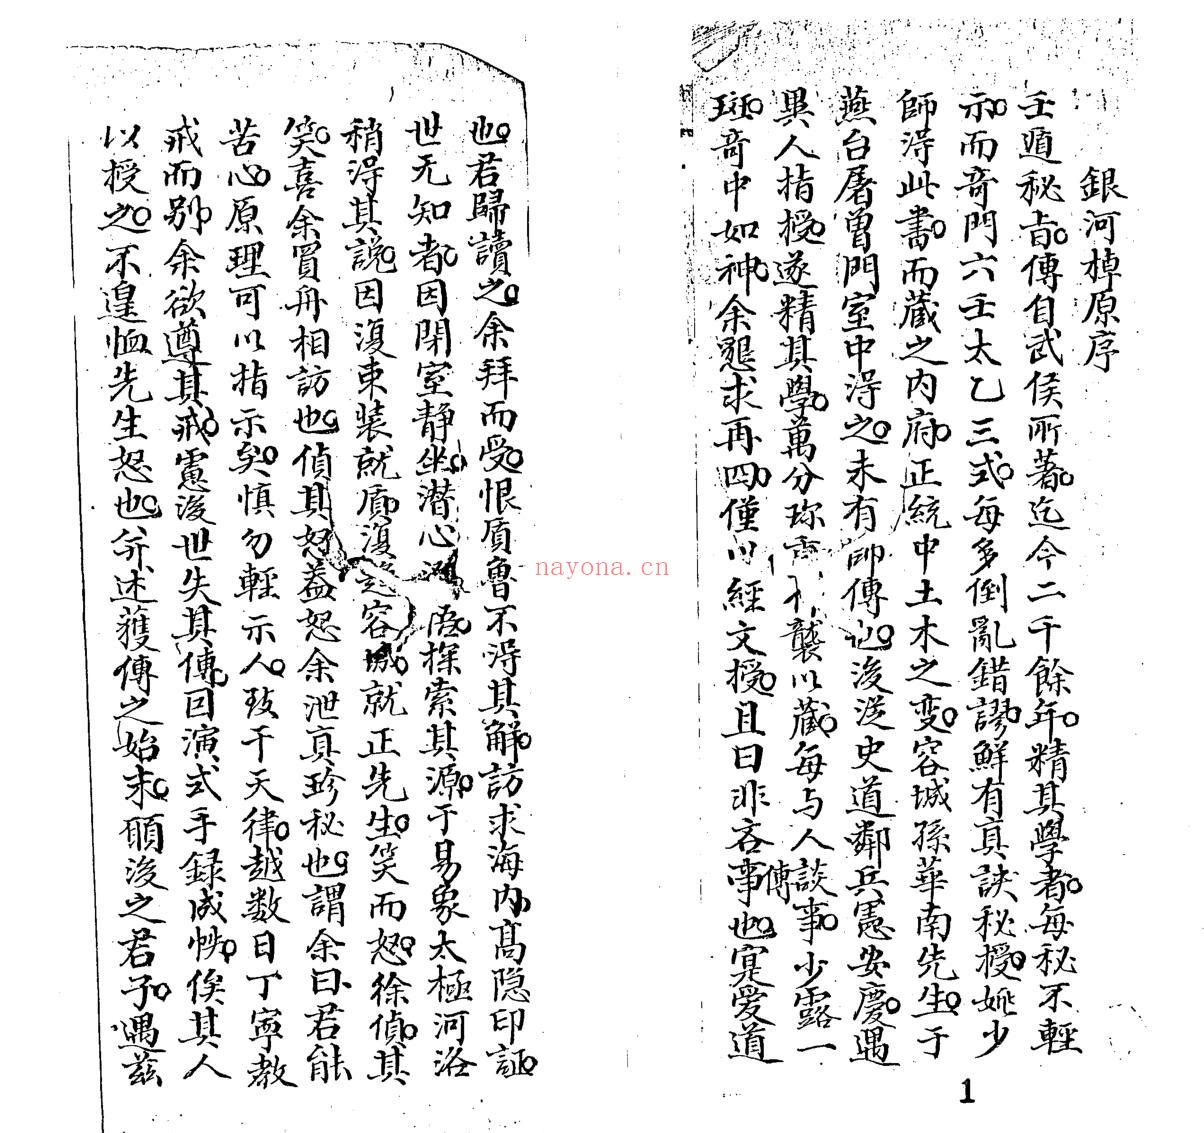 銀河棹原序
壬遁秘旨傳自武侯所著迄今二千餘年精其學者每秘不輕
示而竒門六壬太乙三式每多倒亂錯謬鮮有真訣秘授姚少
師淂此書而藏之内府正統中土木之变容城孫華南先生于
燕台屠曽門室中淂之未有師傳也後迯史道鄰兵憲安慶遇
異人指授遂精其學萬分珎襲以藏每与人談事少露一
斑竒中如神余懇求再四僅以經文授且曰非吝事傳也寔爱道
也君歸讀之余拜而受恨質魯不淂其解訪求海内髙隐印証
世无知者因閉室静坐潜心悟探索其源于易象太極河洛
稍淂其説因復束装就質復容城就正先生笑而怒徐偵其
笑喜余買舟相訪也偵其怒葢怒余泄真珍秘也謂余曰君能
苦心原理可以指示矣慎勿輕示人致干天律越数日丁寧教
戒而别余欲遵其戒慮後世失其傳回演式手録成帙俟其人
以授之不遑恤先生怒也并述獲傳之始末願後之君子遇兹
1
nayona.cn